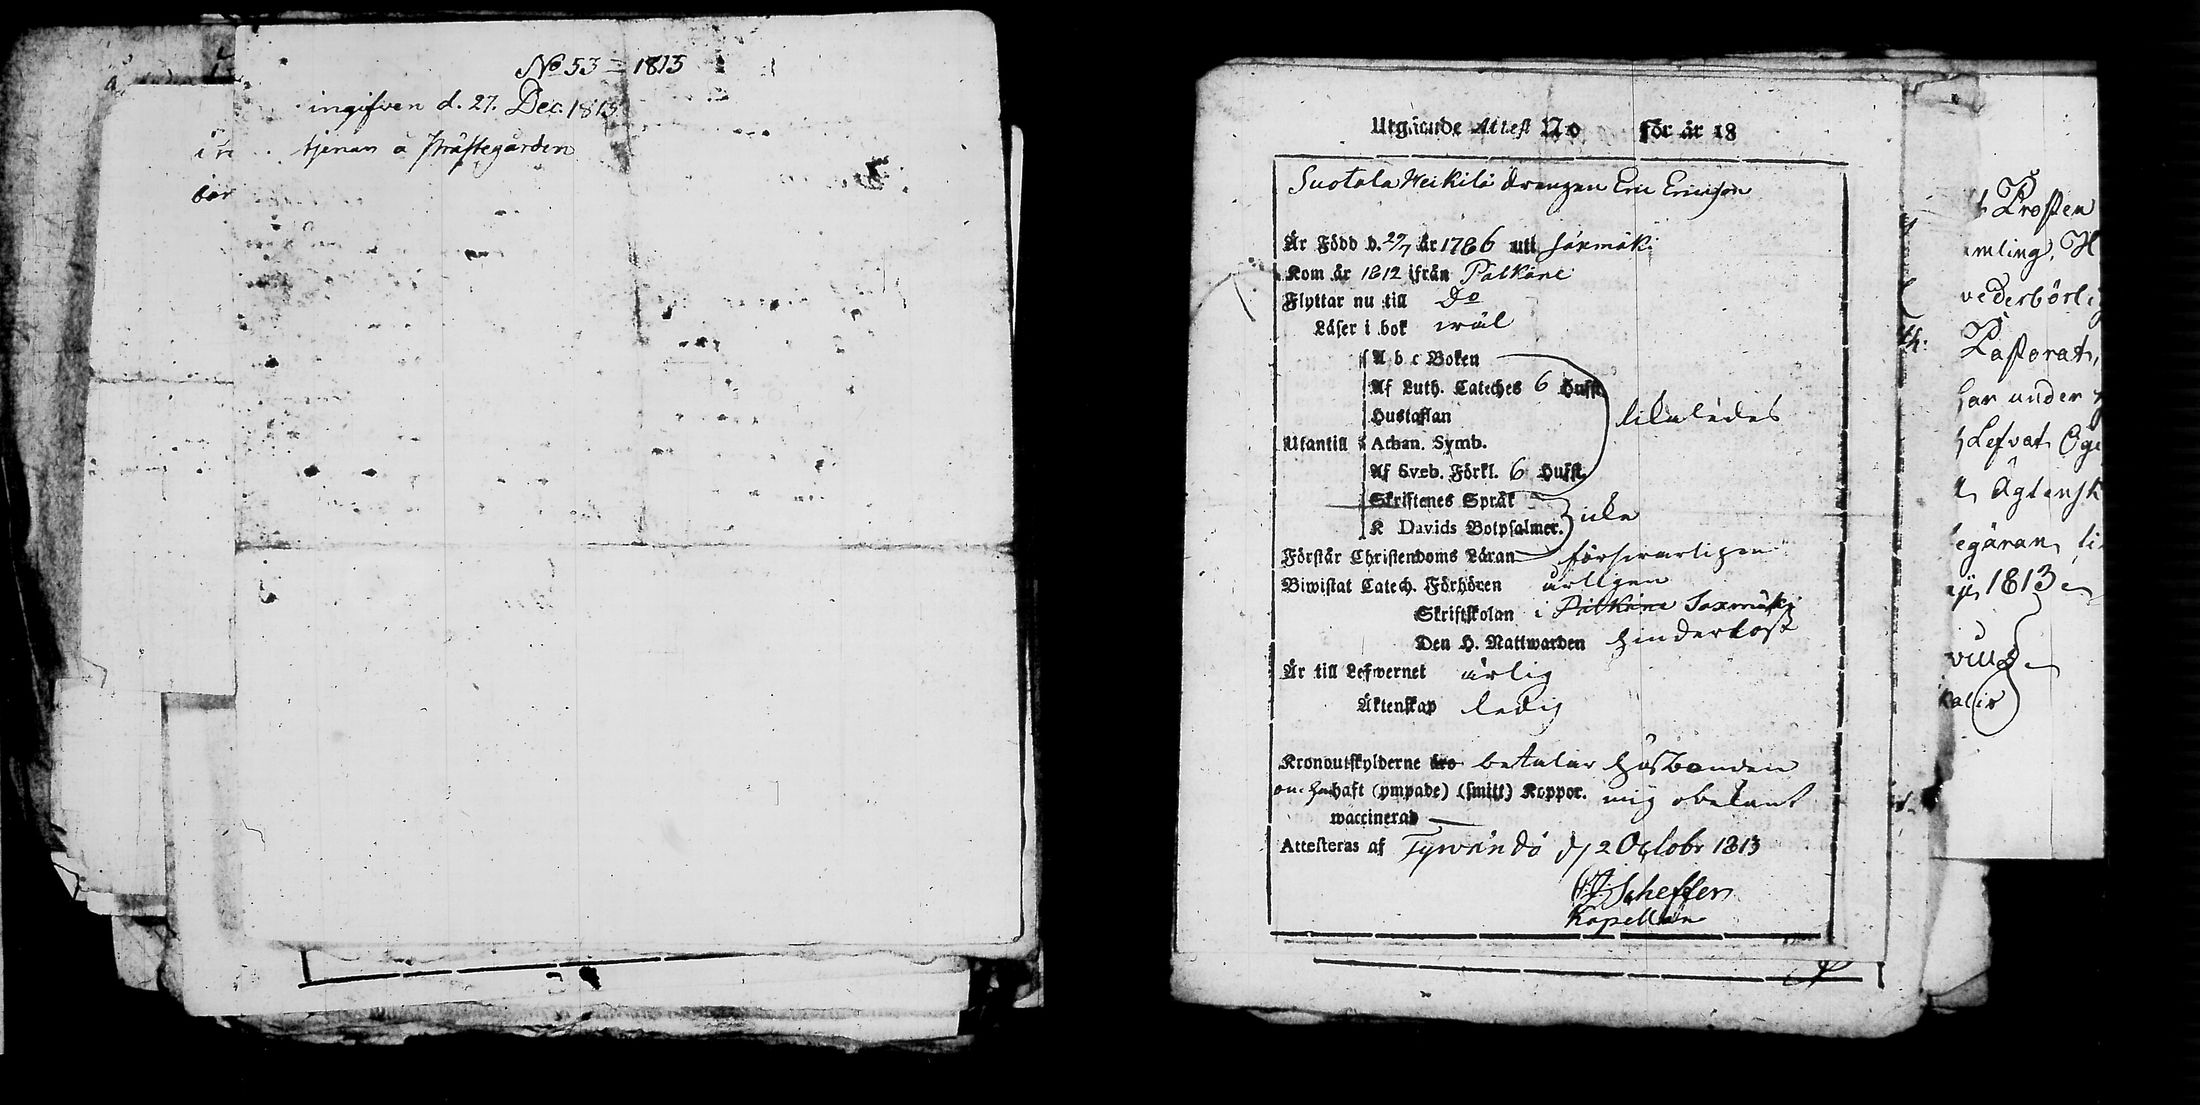 No 53 = 1813
ingifven d. 27. Dec. 1813
tjenar å Prästegården
bör
Utgående Attest No för år 18
Suotala Heikilä drengen Eric Ericsson
Är Född d. 29/7 år 1786 uti Saxmäki
Kom år 1812 ifrån Pälkäne
Flyttar nu till Do
Läser i bok wäl
A b c Boken
Af Luth. Cateches 6 Hufst.
Hustaflan likaledes
Utantill Athan. Symb.
Af Sveb. Förkl. 6 Hufst.
Skriftenes Språk
K Davids Botpsalmer. icke
Förstår Christendoms Läran försvarligen
Biwistat Catech. Förhören årligen
Skriftskolan i Pälkäne Saxmäki
Den H. Nattwarden hinderlöst
Är till Lefwernet ärlig
Äktenskap ledig
Kronoutskylderne äro betalar husbonden
om han haft (ympade) (smitt) Koppor. mig obekant
waccinerad
Attesteras af Tyrvändö d 2 Octobr 1813
Scheffer
Kapellan
Prosten
mling, H
vederbörli
Pastorat,
har under
Lefvat Oge
Ägtensk
egäran, ti
1813